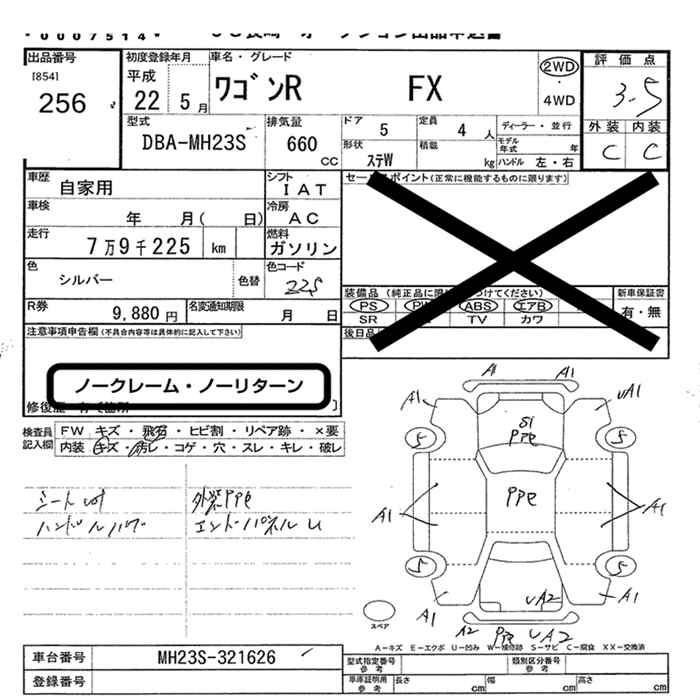 0007514
出品番号
[854]
256
初度登録年月
平成
22 5月
車名・グレード
ワゴンR FX
2WD
・
4WD
評価点
3.5
外装 内装
C C
型式
DBA-MH23S
排気量
660
CC
ドア
5
定員
4 人
ディーラー・並行
モデル年式 年
形状
ステW
積載
kg
ハンドル 左・右
車歴
自家用
シフト
IAT
車検
年 月( 日)
冷房
AC
走行
7万9千225 km
燃料
ガソリン
色
シルバー
色替
色コード
22S
R券
9,880 円
名変通知期限
月 日
セールスポイント(正常に機能するものに限ります)
装備品
PS ABS エアB
SR TV カワ
新車保証書
有・無
後日品
注意事項申告欄(不具合内容等は具体的に記入して下さい)
ノークレーム・ノーリターン
検査員記入欄
FW キズ・飛石・ヒビ割・リペア跡・×要
内装・キズ・汚レ・コゲ・穴・スレ・キレ・破レ
シート
ハンドル
外装PPペ
エンドパネルU
A1 A1
A1 UA1
S1
PPペ
5 5
PPペ
A1 A1
5 5
UA2
A1 A1
A2 PPペ UA2
スペア
A-キズ E-エクボ U-凹み W-補修跡 S-サビ C-腐食 XX-交換済
車台番号
MH23S-321626
登録番号
型式指定番号
参考
類別区分番号
参考
車庫証明用
参考
長さ cm
幅 cm
高さ cm